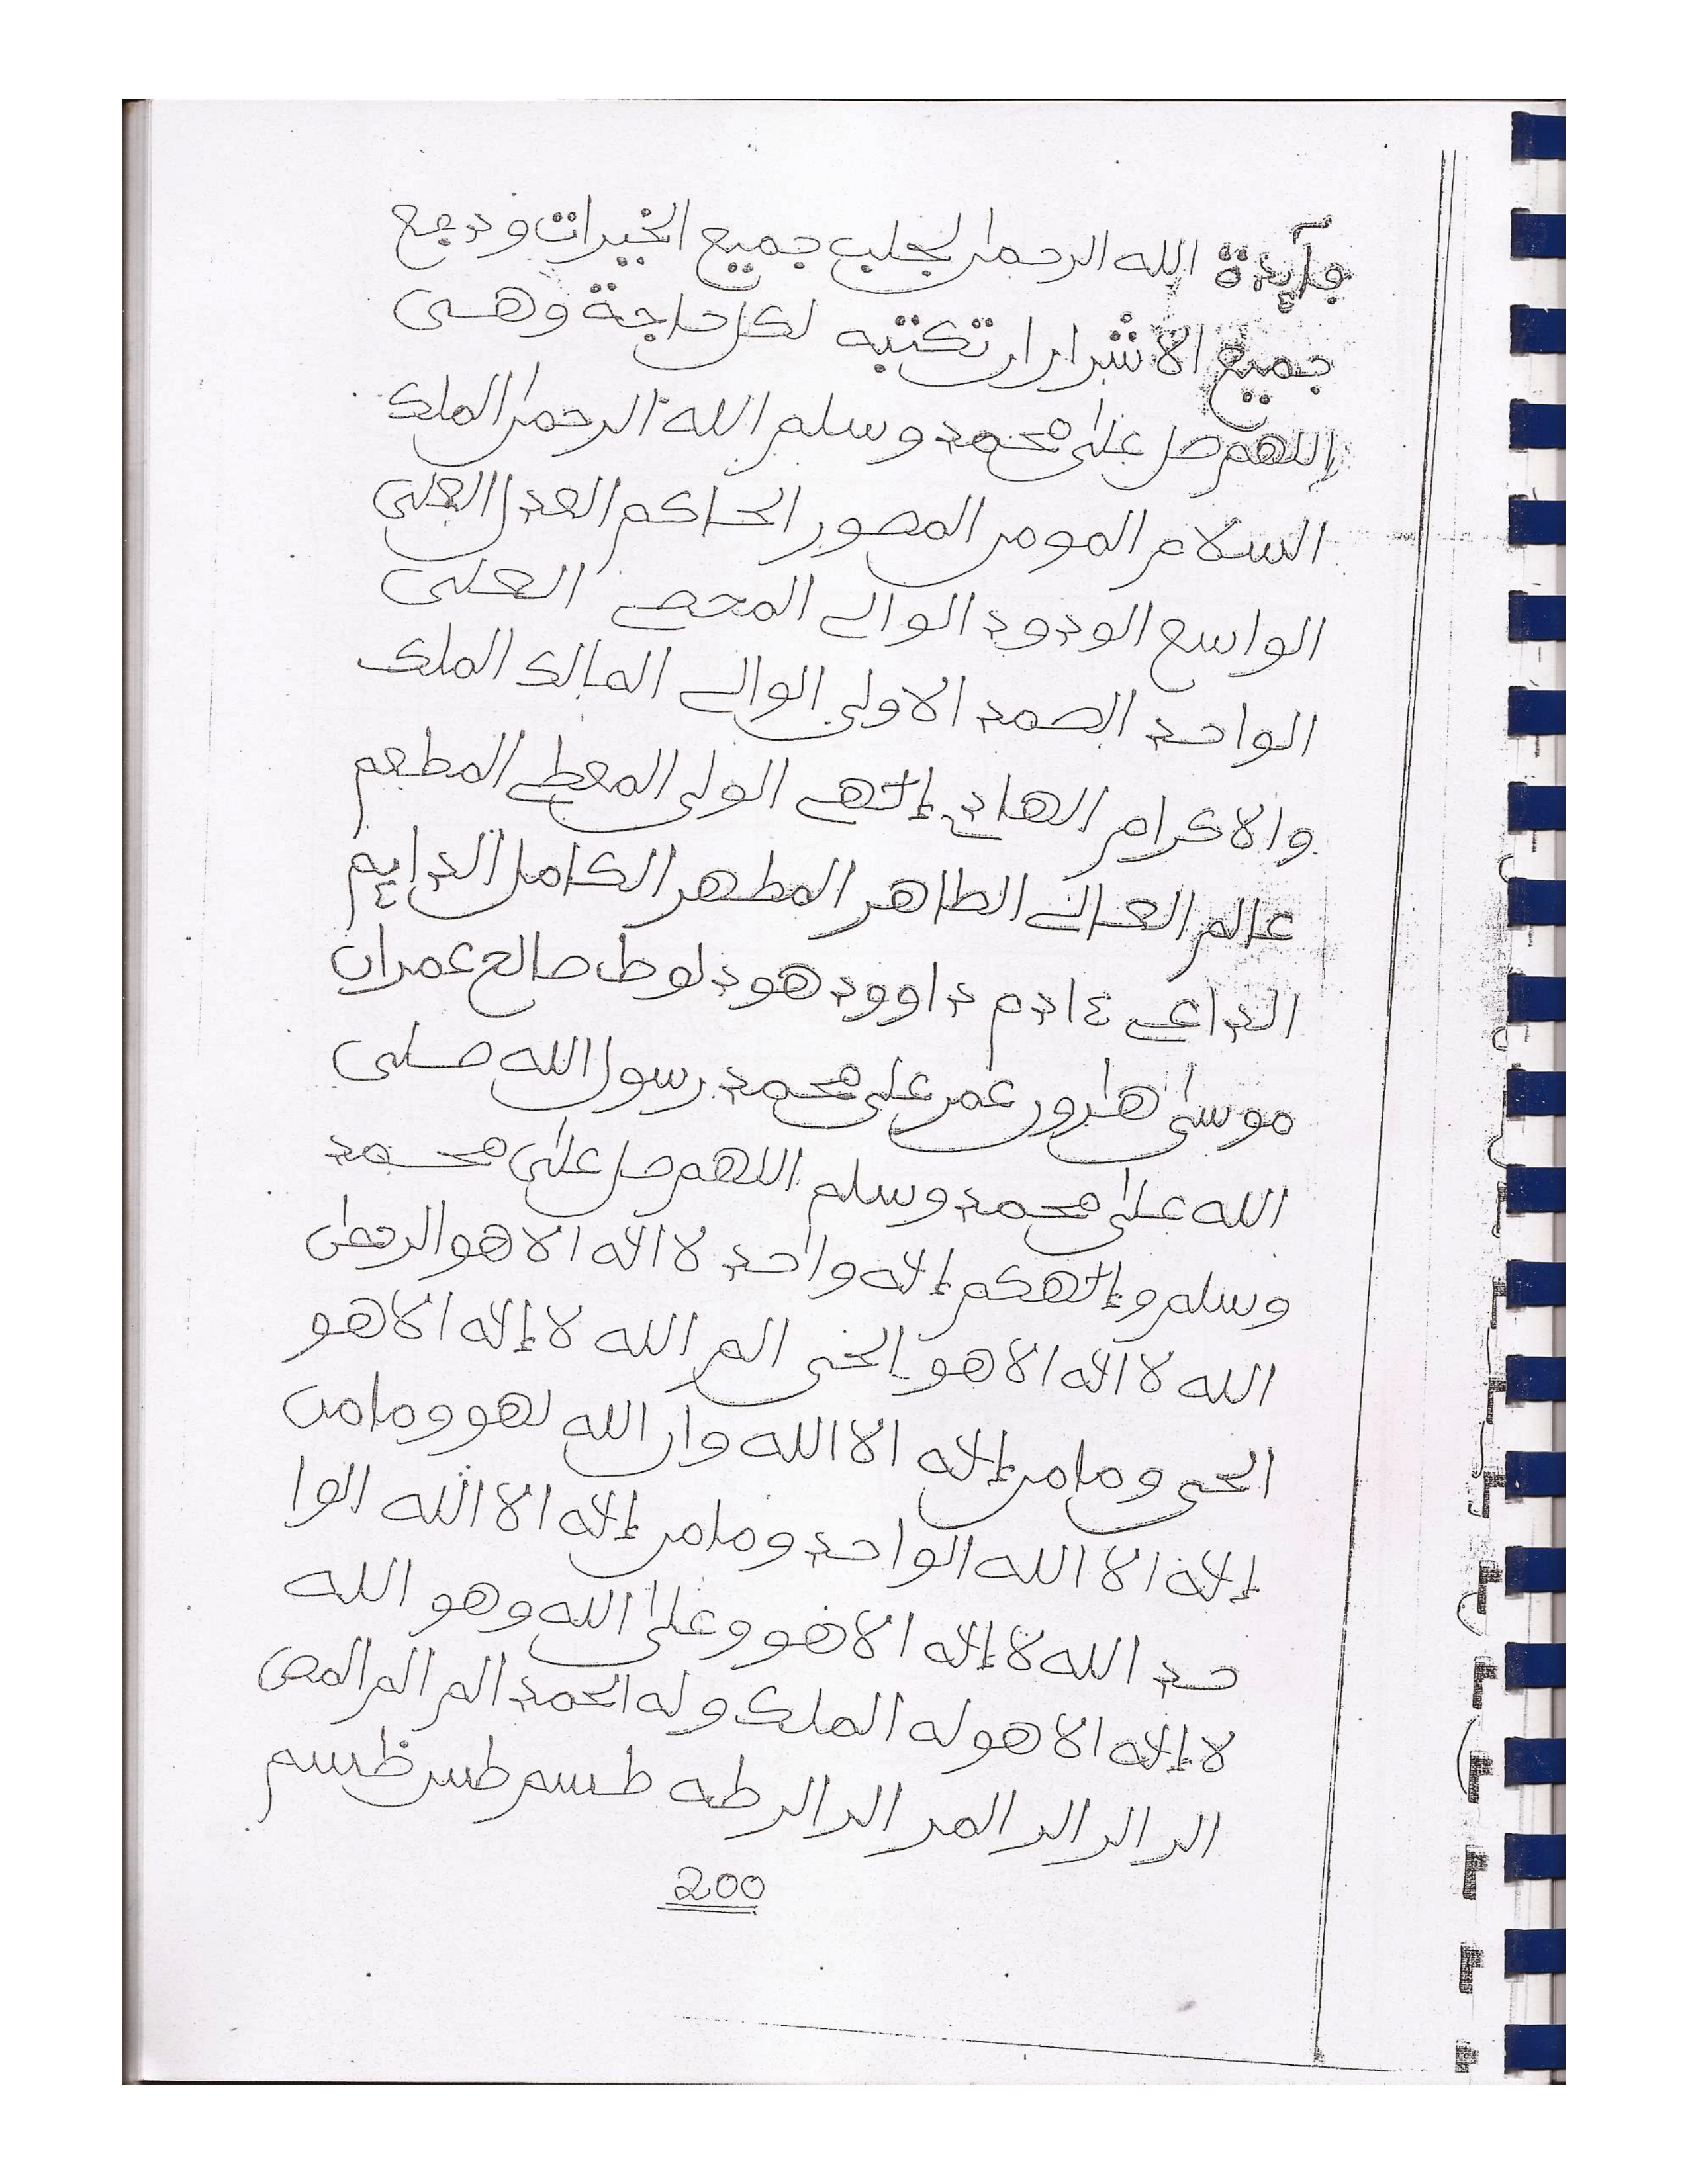 فآيدة الله الرحمن لجلب جميع الخيرات ودفع
جميع الاشرار ان تكتبه لكل حاجة وهـى
اللهم صل على محمد وسلم الله الرحمن الملك
السلام المومن المصور الحاكم العدل العلى
الواسع الودود الوالے المحصے العلى
الواحد الصمد الاولى الوالے المالك الملك
والاكرام الهادے إلهے الولى المعطے المطعم
عالم العالے الطاهر المطهر الكامل الدايم
الداعے ءادم داوود هود لوط صالح عمران
موسىٰ هٰرون عمر على محمد رسول الله صلى
الله علىٰ محمد وسلم اللهم صل علىٰ محمد
وسلم وإلهكم إله واحد لا اله الا هو الرحمٰن
الله لا اله الا هو الحى الم الله لا إله الا هو
الحى وما من إله الا الله وان الله لهو وما من
إله الا الله الواحد وما من إله الا الله الوا
حد الله لا إله الا هو وعلىٰ الله وهو الله
لا إله الا هو له الملك وله الحمد الم الم المص
الر الر الر المر الر الر طه طسم طس طسم
200